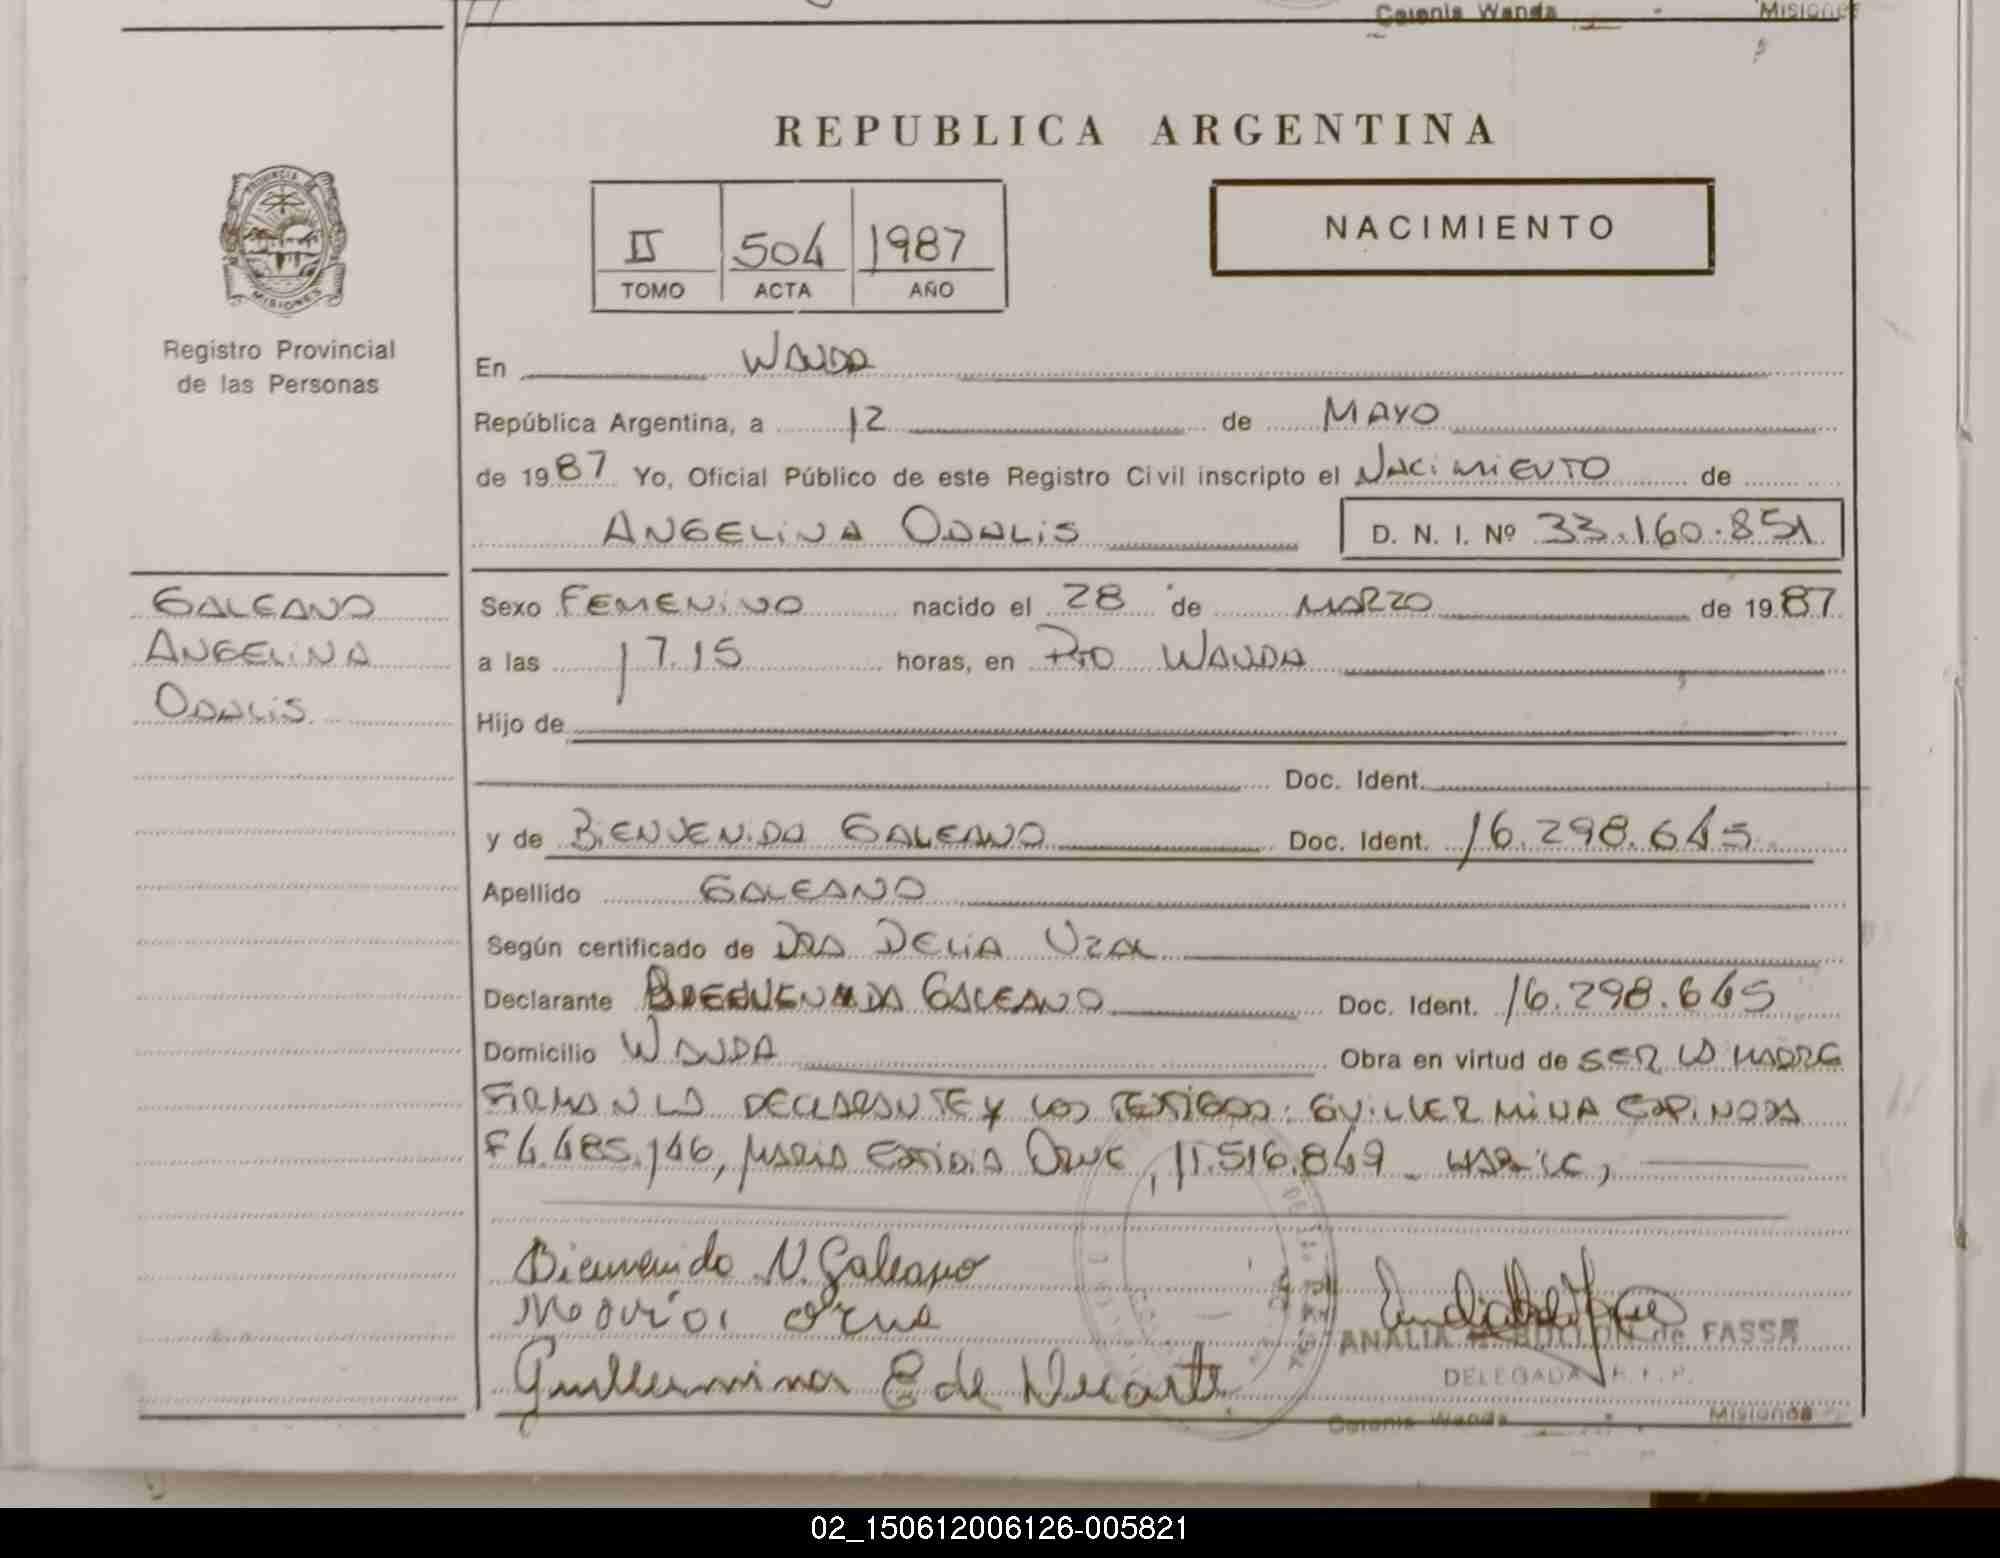 Colonia Wanda - Misiones
REPUBLICA ARGENTINA
PROVINCIA DE
MISIONES
II 504 1987
TOMO ACTA AÑO
NACIMIENTO
Registro Provincial
de las Personas
En WANDA
República Argentina, a 12 de MAYO
de 1987 Yo, Oficial Público de este Registro Civil inscripto el NACIMIENTO de
ANGELINA ODALIS D. N. I. Nº 33.160.851
GALEANO
ANGELINA
ODALIS
Sexo FEMENINO nacido el 28 de MARZO de 1987
a las 17.15 horas, en PTO WANDA
Hijo de
Doc. Ident.
y de BIENVENIDA GALEANO Doc. Ident. 16.298.645
Apellido GALEANO
Según certificado de DRA DELIA UZAL
Declarante BIENVENIDA GALEANO Doc. Ident. 16.298.645
Domicilio WANDA Obra en virtud de SER LA MADRE
FIRMAN LA DECLARANTE Y LOS TESTIGOS: GUILLERMINA ESPINOSA
F4.485.146, MARIA ORUE, 11.516.849
Bienvenida N. Galeano
Maria Orue
Guillermina E de
ANALIA BULLON de FASSA
DELEGADA R.P.P.
Colonia Wanda - Misiones
02_150612006126-005821